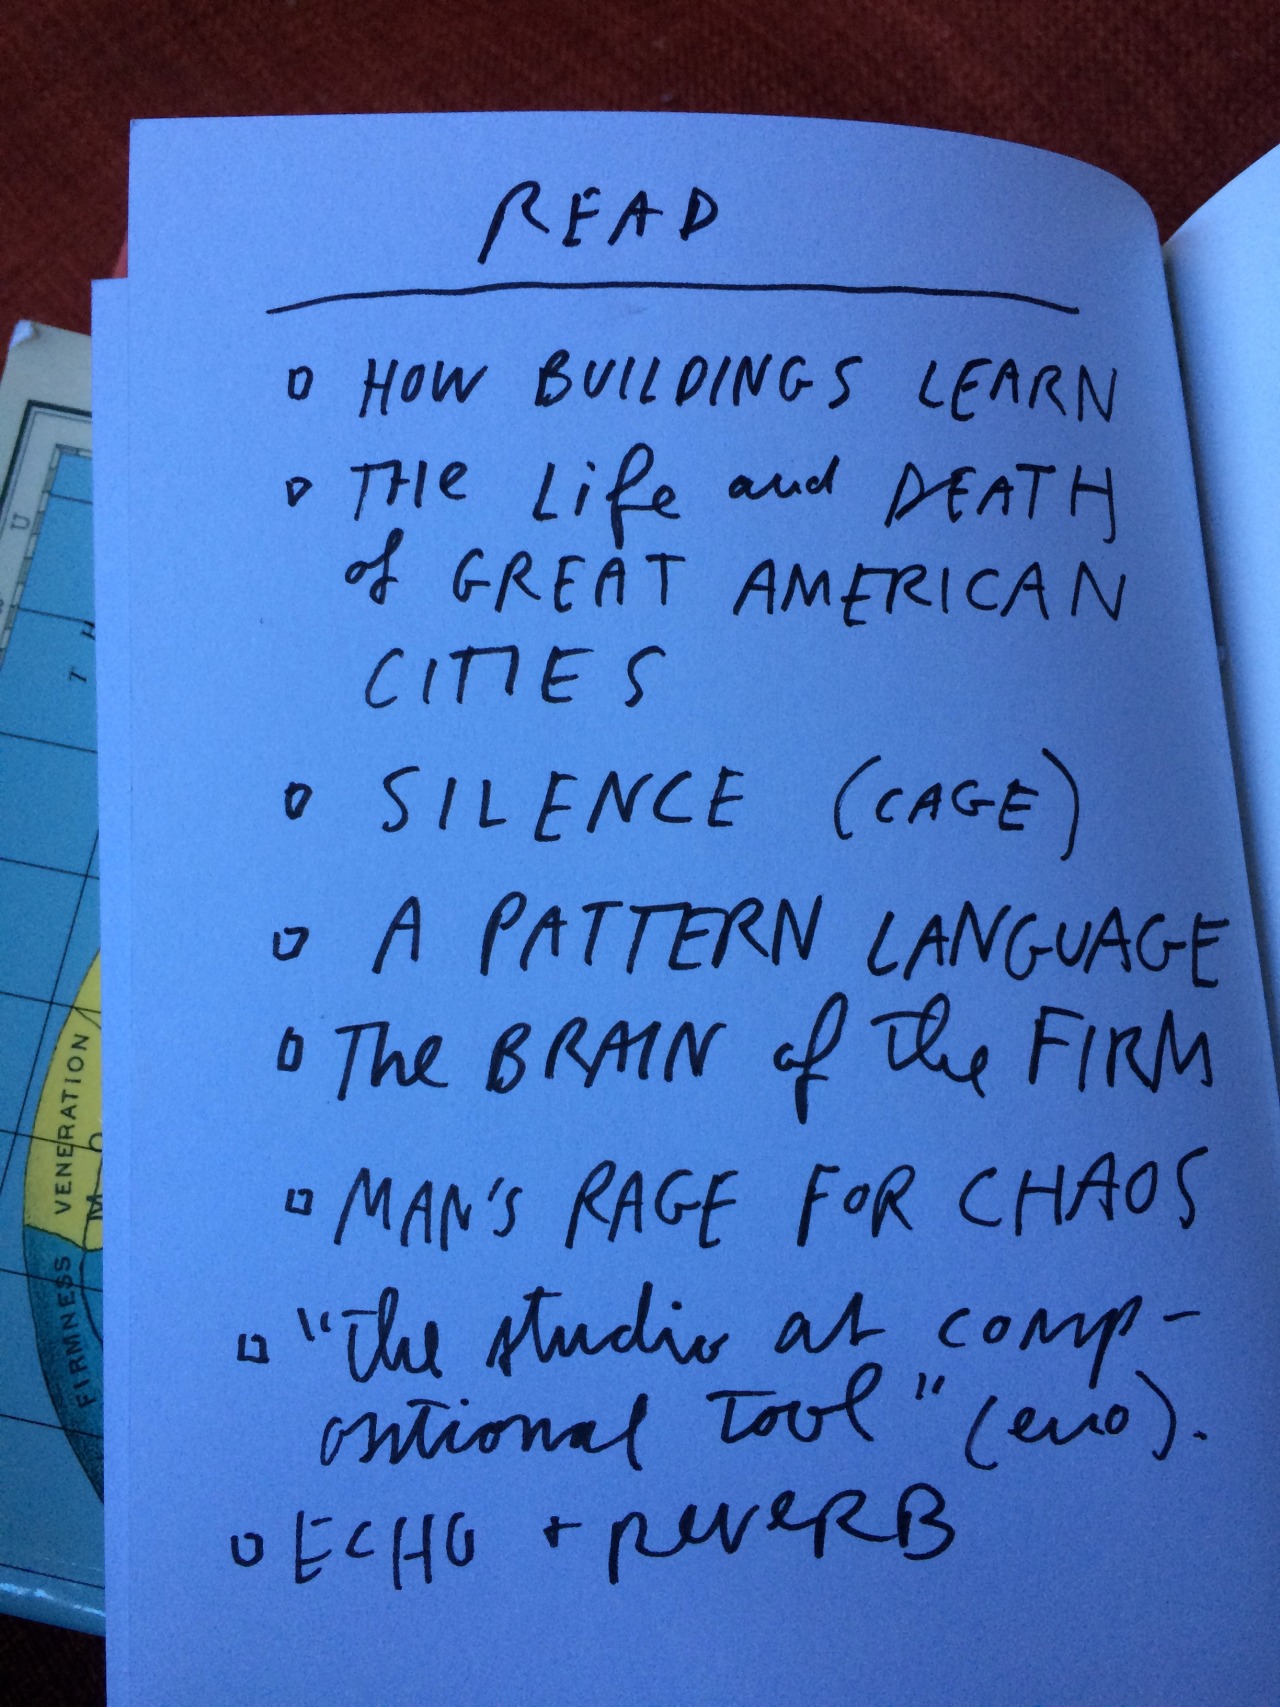 READ
HOW BUILDINGS LEARN
THE Life and DEATH
of GREAT AMERICAN
CITIES
SILENCE (CAGE)
A PATTERN LANGUAGE
The BRAIN of the FIRM
MAN'S RAGE FOR CHAOS
"the studio at comp-
ositional tool" (eno).
ECHO + REVERB
U
T H
VENERATION
M
FIRMNESS